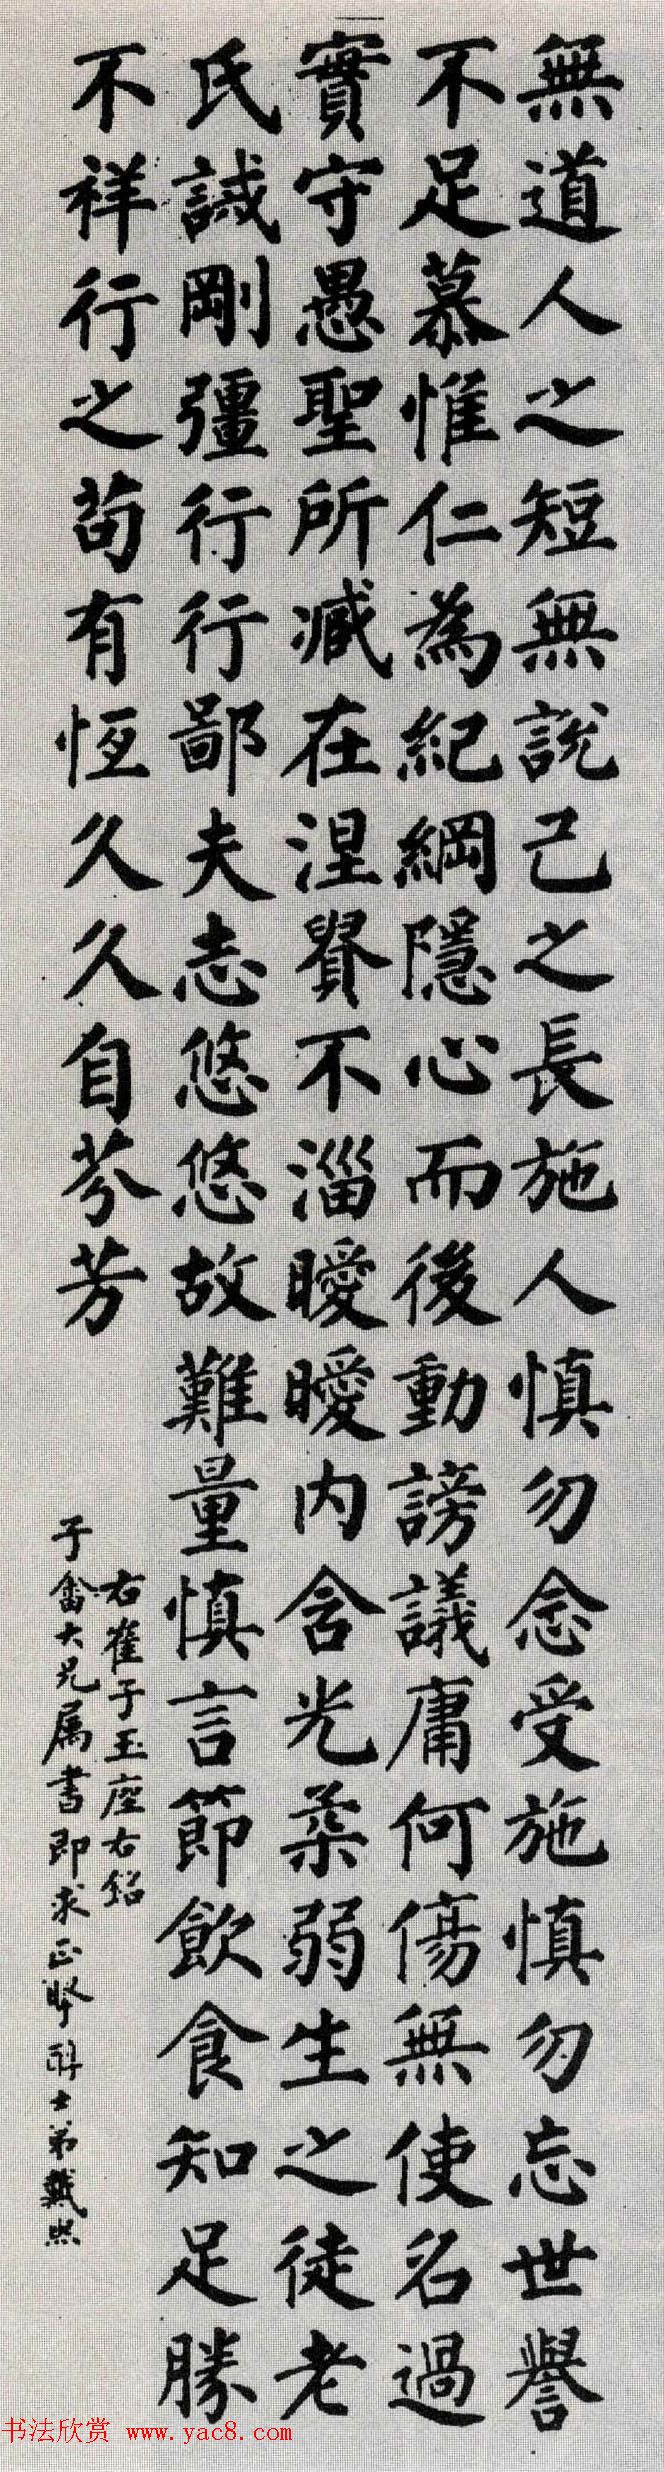 無道人之短無說己之長施人慎勿念受施慎勿忘世譽
不足慕惟仁為紀綱隱心而後動謗議庸何傷無使名過
實守愚聖所臧在涅貴不淄曖曖內含光柔弱生之徒老
氏誡剛彊行行鄙夫志悠悠故難量慎言節飲食知足勝
不祥行之苟有恆久久自芬芳
右崔子玉座右銘
子畬大兄属書即求正腕 士弟戴熙
书法欣赏 www.yac8.com